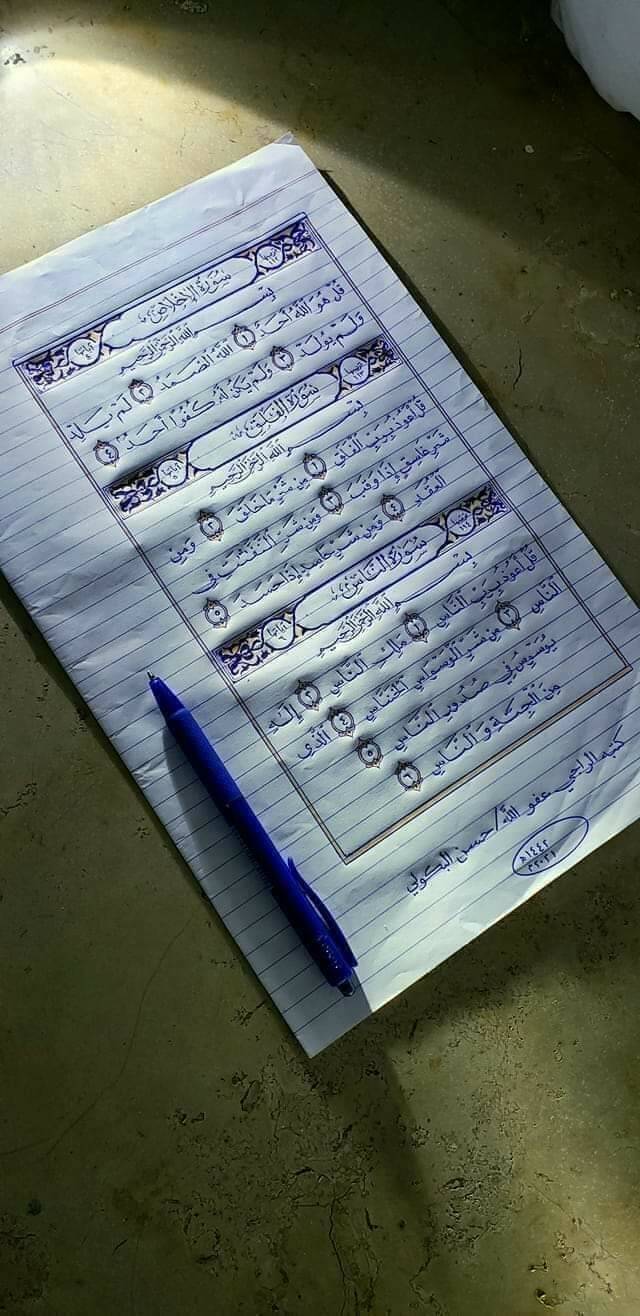 سُورَةُ الإِخْلَاصِ
بِسْمِ اللَّهِ الرَّحْمَنِ الرَّحِيمِ
قُلْ هُوَ اللَّهُ أَحَدٌ ١ اللَّهُ الصَّمَدُ ٢ لَمْ يَلِدْ
وَلَمْ يُولَدْ ٣ وَلَمْ يَكُن لَّهُ كُفُوًا أَحَدٌ ٤
سُورَةُ الفَلَقِ
بِسْمِ اللَّهِ الرَّحْمَنِ الرَّحِيمِ
قُلْ أَعُوذُ بِرَبِّ الْفَلَقِ ١ مِن شَرِّ مَا خَلَقَ ٢ وَمِن
شَرِّ غَاسِقٍ إِذَا وَقَبَ ٣ وَمِن شَرِّ النَّفَّٰثَٰتِ فِي
الْعُقَدِ ٤ وَمِن شَرِّ حَاسِدٍ إِذَا حَسَدَ ٥
سُورَةُ النَّاسِ
بِسْمِ اللَّهِ الرَّحْمَنِ الرَّحِيمِ
قُلْ أَعُوذُ بِرَبِّ النَّاسِ ١ مَلِكِ النَّاسِ ٢ إِلَٰهِ
النَّاسِ ٣ مِن شَرِّ الْوَسْوَاسِ الْخَنَّاسِ ٤ الَّذِي
يُوَسْوِسُ فِي صُدُورِ النَّاسِ ٥
مِنَ الْجِنَّةِ وَ النَّاسِ ٦
كتبه الراجي عفو الله / حسن البكولي
١٤٤٢هـ
٢٠٢١م